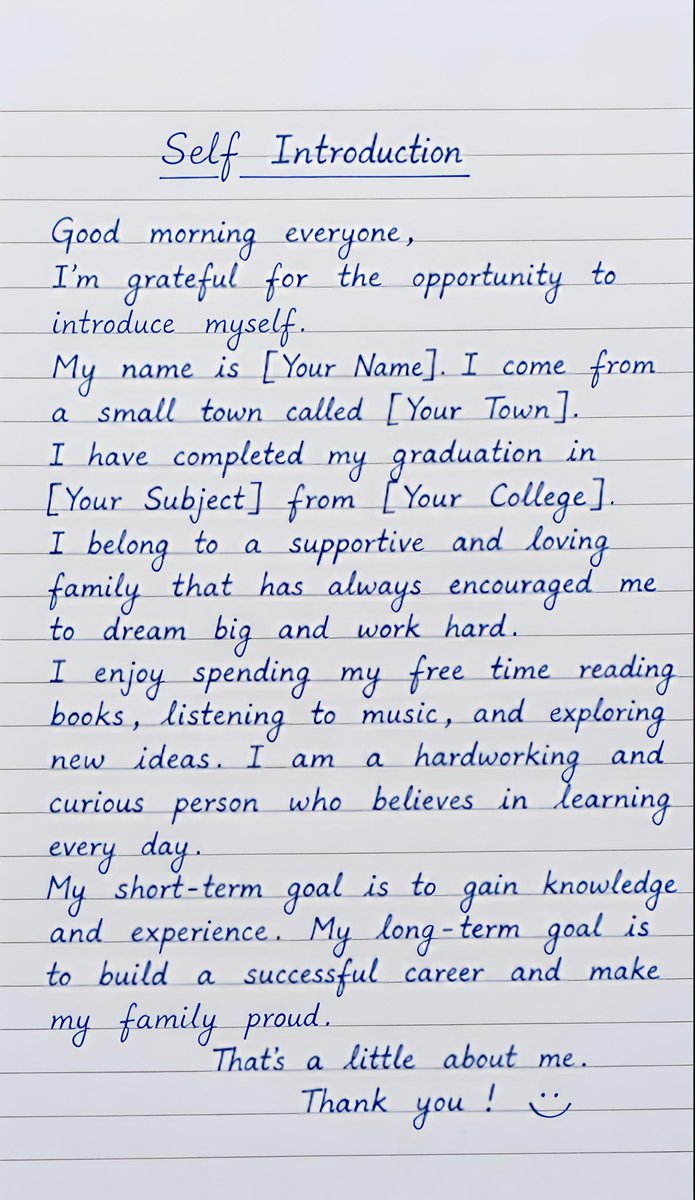 Self Introduction
Good morning everyone,
I'm grateful for the opportunity to
introduce myself.
My name is [Your Name]. I come from
a small town called [Your Town].
I have completed my graduation in
[Your Subject] from [Your College].
I belong to a supportive and loving
family that has always encouraged me
to dream big and work hard.
I enjoy spending my free time reading
books, listening to music, and exploring
new ideas. I am a hardworking and
curious person who believes in learning
every day.
My short-term goal is to gain knowledge
and experience. My long-term goal is
to build a successful career and make
my family proud.
That's a little about me.
Thank you! :)